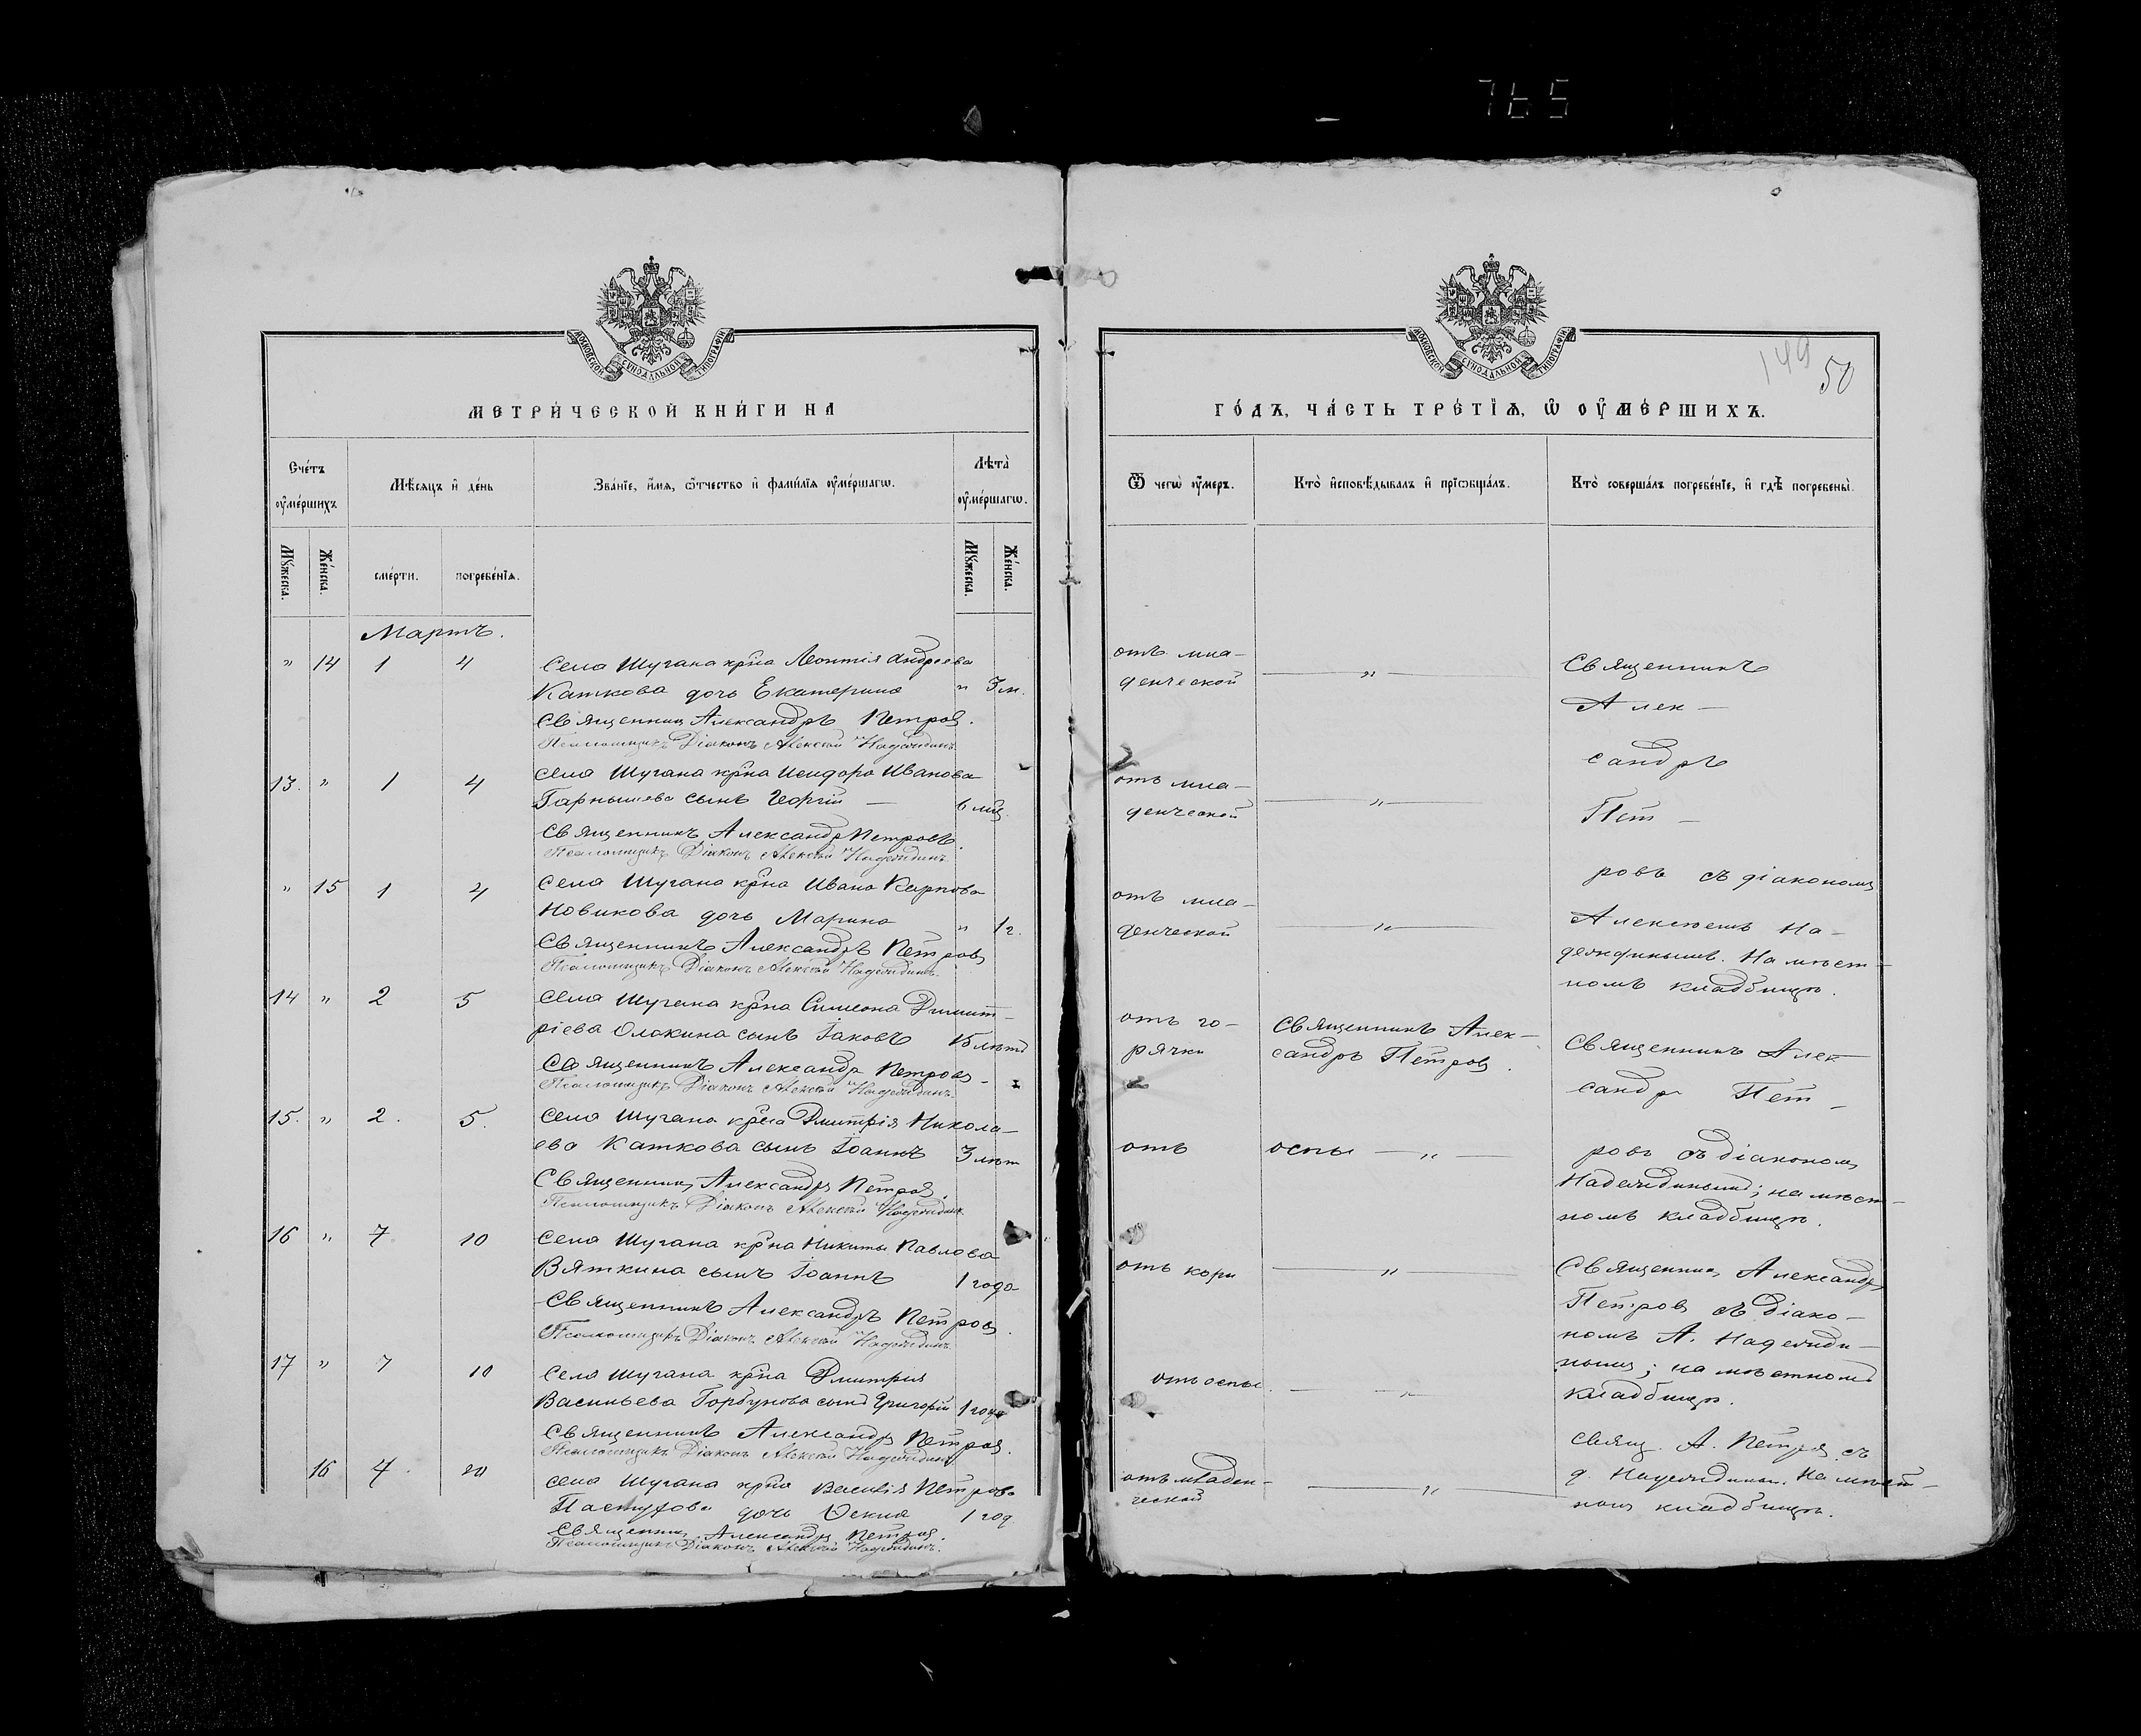 765
МОСКОВСКОЙ СУНОДАЛЬНОЙ ТИПОГРАФІИ
МЕТРИ́ЧЕСКОЙ КНИ́ГИ НА
Сче́тъ ᲂу҆ме́ршихъ
Мѣ́сяцъ и҆ де́нь
Зва́нїе, и҆́мя, ѻ҆́тчество и҆ фами́лїя ᲂу҆ме́ршагѡ.
Лѣта̀ ᲂу҆ме́ршагѡ.
Мꙋ́жеска.
Же́нска.
сме́рти.
погребе́нїѧ.
Мꙋ́жеска.
Же́нска.
Мартъ.
" 14 1 4 Села Шугана кр̃на Леонтія Андреева
Каткова дочь Екатерина " 3 м.
Священник Александръ Петров.
Псаломщикъ Діаконъ Алексѣй Надеждинъ
13. " 1 4 Села Шугана кр̃на Исидора Иванова
сынъ Георгій — 6 мц.
Священникъ Александр Петровъ.
Псаломщикъ Діаконъ Алексѣй Надеждинъ.
" 15 1 4 Села Шугана кр̃на Ивана Карпова
Новикова дочь Марина " 1 г.
Священникъ Александръ Петров
Псаломщикъ Діаконъ Алексѣй Надеждинъ.
14 " 2 5 Села Шугана кр̃на Симеона Димит-
ріева Олокина сынъ Іаковъ 15 лѣтъ
Священникъ Александр Петровъ
Псаломщикъ Діаконъ Алексѣй Надеждинъ.
15. " 2. 5. Села Шугана кр̃на Дмитрія Никола-
ева Каткова сынъ Іоаннъ 3 лѣт
Священник Александр Петров.
Псаломщикъ Діаконъ Алексѣй Надеждинъ.
16 " 7 10 Села Шугана кр̃на Никиты Павлова
Вяткина сынъ Іоаннъ 1 года
Священникъ Александръ Петров.
Псаломщикъ Діаконъ Алексѣй Надеждинъ.
17 " 7 10 Села Шугана кр̃на Дмитрия
Васильева Горбунова сынъ Григорій 1 года
Священникъ Александр Петров.
Псаломщикъ Діаконъ Алексѣй Надеждинъ.
16 7. 10 Села Шугана кр̃на Василія Петрова
Пастухова дочь 1 год
Священник Александр Петров.
Псаломщикъ Діаконъ Алексѣй Надеждинъ.
МОСКОВСКОЙ СУНОДАЛЬНОЙ ТИПОГРАФІИ
149
50
ГО́ДЪ, ЧА́СТЬ ТРЕ́ТЇѦ, Ѡ҆ ОУ҆МЕ́РШИХЪ.
Ѿ чегѡ̀ ᲂу҆́меръ.
Кто̀ и҆сповѣ́дывалъ и҆ прїѡбща́лъ.
Кто̀ соверша́лъ погребе́нїе, и҆ гдѣ̀ погребены̀.
отъ мла-
денческой — " —
Священникъ
Алек —
сандръ
отъ мла-
денческой — " —
Пет —
ровъ съ діакономъ
отъ мла-
денческой — " —
Алексѣемъ На-
деждинымъ. На мѣст-
номъ кладбищѣ.
отъ го-
рячки
Священникъ Алек-
сандръ Петров.
Священникъ Алек
сандр Пет —
отъ оспы — " —
ровъ съ діакономъ
Надеждинымъ; на мѣст-
номъ кладбищѣ.
отъ кори — " —
Священник Александр
Петров съ діако-
номъ А. Надежди-
нымъ; на мѣстномъ
кладбищѣ.
отъ оспы. — " —
отъ младен-
ческой — " —
Свящ. А. Петров съ
д. Надеждинымъ. На мѣст-
номъ кладбищѣ.